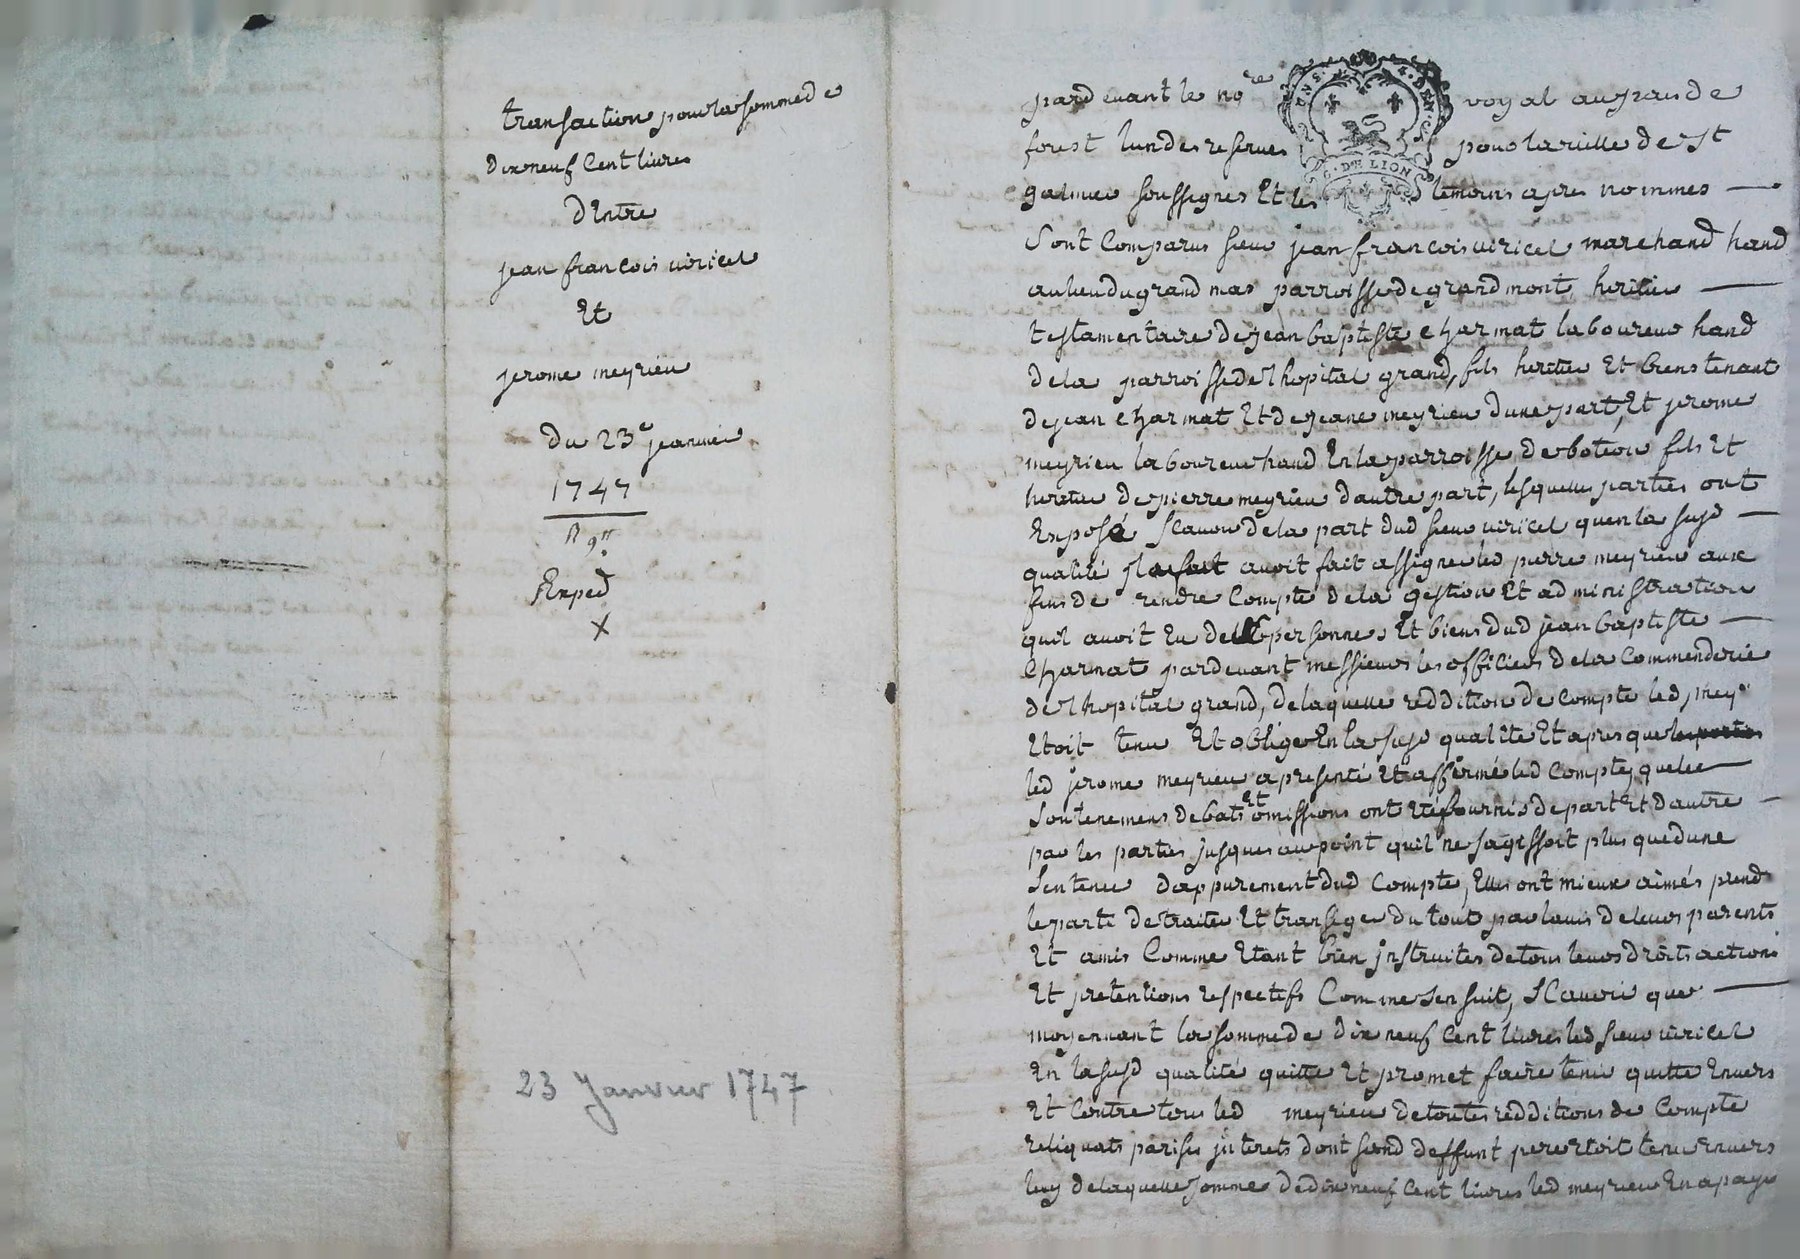 transaction pour la somme de
dix neuf cent livres
d'Entre
jean francois viricel
Et
jerome meyrieu
du 23e janvier
1747
Exped
X
23 Janvier 1747
pardevant le nore royal au grand de
forest lun des reserves pour la ville de st
galmier soussignes Et les temoins apres nommes
Sont Comparus sieur jean francois viricel marchand hand
au lieu du grand mas parroisse de grandmont, heritier
testamentaire de jean baptiste charmat laboureur hand
de la parroisse de lhopital grand, fils heritier Et biens tenant
de jean charmat Et de jeane meyrieu dune part, Et jerome
meyrieu laboureur hand En la parroisse de boteon fils Et
heritier de pierre meyrieu dautre part, lesquelles parties ont
Exposé scavoir de la part dud sieur viricel quen la susd
qualité jl avoit fait assigner led pierre meyrieu aux
fins de rendre Compte de la gestion Et administration
quil avoit Eu de la personne Et biens dud jean baptiste
Charmat pardevant messieurs les officiers de la Commenderie
de lhopital grand, de laquelle reddition de Compte led mey
Etoit tenu Et obligé En la susd qualité Et apres que
led jerome meyrieu a presenté Et affirmé led Compte, que les
soutenemens debats Et omissions ont Eté fournis de part Et dautre
par les parties jusques au point quil ne sagissoit plus que dune
sentence dappurement dud Compte, Elles ont mieux aimés prendre
le parti de traiter Et transiger du tout par lavis de leurs parents
Et amis Comme Etant bien jnstruites de tous leurs droits actions
Et pretentions respectifs Comme sensuit, sCavoir que
moyennant la somme de dix neuf Cent livres led sieur viricel
En la susd qualité quitte Et promet faire tenir quitte Envers
Et Contre tous led meyrieu de toutes redditions de Compte
reliquats parisis jnterets dont sond deffunt pere Etoit tenu Envers
luy de laquelle somme de dix neuf cent livres led meyrieu En a payé